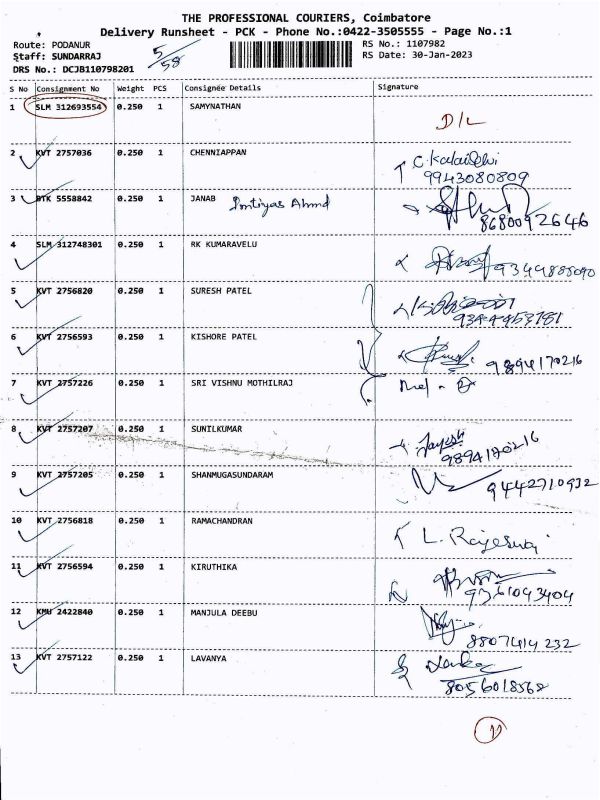 THE PROFESSIONAL COURIERS, Coimbatore
Delivery Runsheet - PCK - Phone No.:0422-3505555 - Page No.:1
Route: PODANUR
Staff: SUNDARRAJ
DRS No.: DCJB110798201
5/58
RS No.: 1107982
RS Date: 30-Jan-2023
S No Consignment No Weight PCS Consignée Details Signature
1 SLM 312693554 0.250 1 SAMYNATHAN D/L
2 KVT 2757036 0.250 1 CHENNIAPPAN
9943080809
3 BTK 5558842 0.250 1 JANAB Imtiyas Ahmd
8680092646
4 SLM 312748301 0.250 1 RK KUMARAVELU
5 KVT 2756820 0.250 1 SURESH PATEL
6 KVT 2756593 0.250 1 KISHORE PATEL
9894170216
7 KVT 2757226 0.250 1 SRI VISHNU MOTHILRAJ
8 KVT 2757207 0.250 1 SUNILKUMAR Jayesh
9894170216
9 KVT 2757205 0.250 1 SHANMUGASUNDARAM
9442710932
10 KVT 2756818 0.250 1 RAMACHANDRAN
11 KVT 2756594 0.250 1 KIRUTHIKA
9361043404
12 KMU 2422840 0.250 1 MANJULA DEEBU
8807414232
13 KVT 2757122 0.250 1 LAVANYA
8056018568